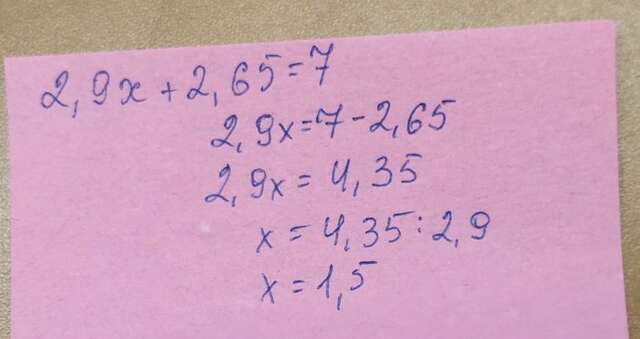 2,9x + 2,65 = 7
2,9x = 7 - 2,65
2,9x = 4,35
x = 4,35 : 2,9
x = 1,5